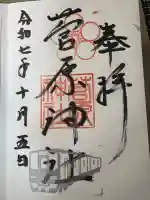 奉拝
菅原神社
令和七年十月五日